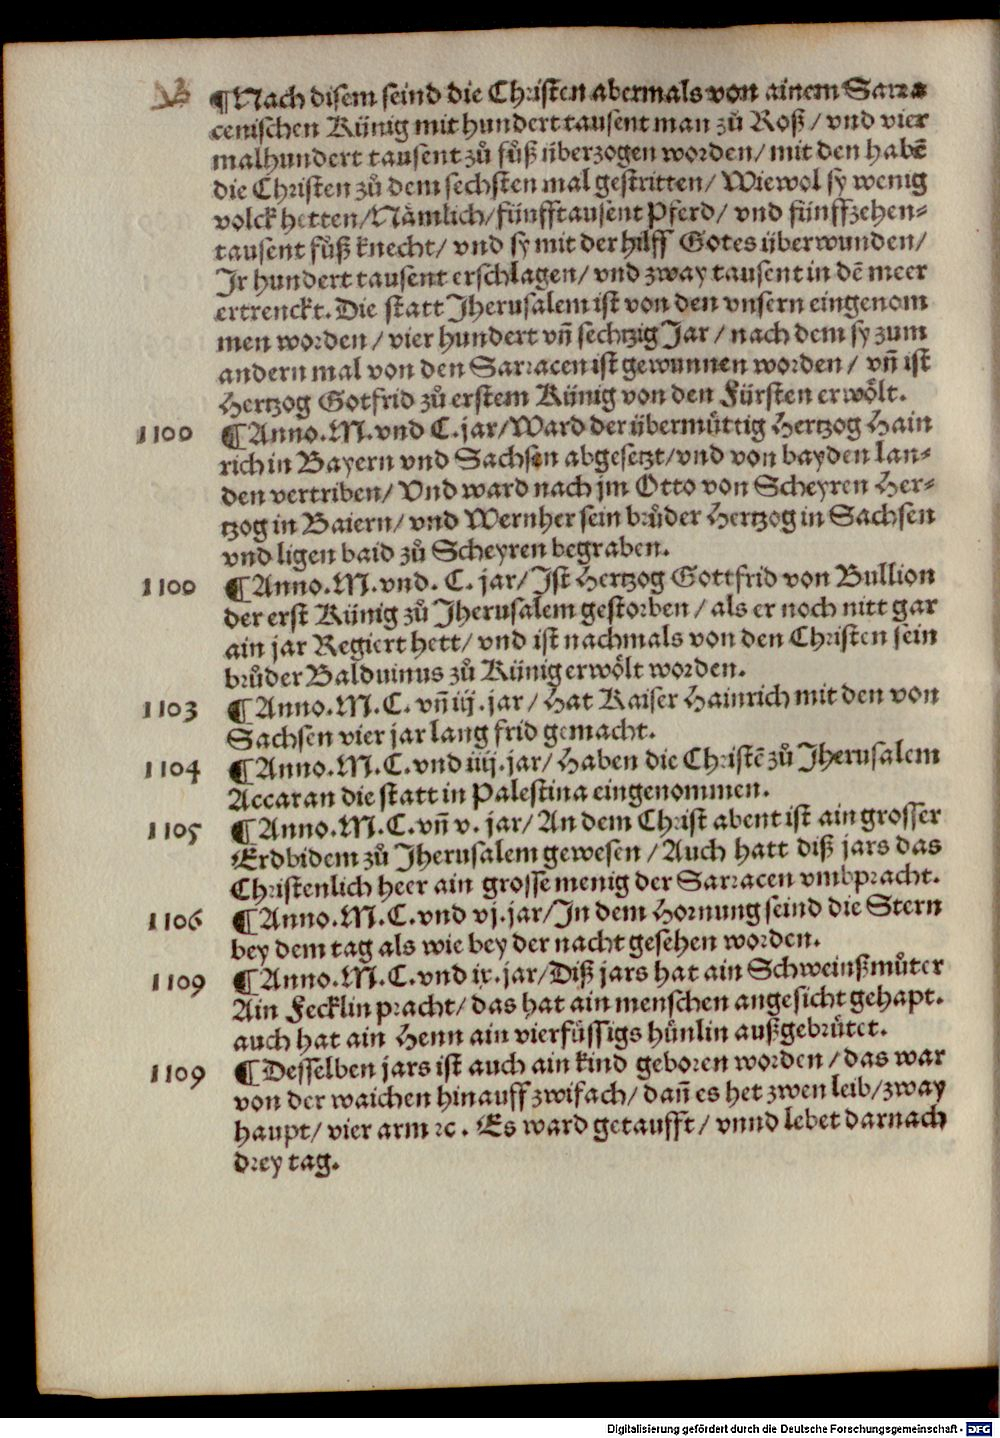 NB
¶Nach disem seind die Christen abermals von ainem Sarra
cenischen Künig mit hundert tausent man zů Roß / vnd vier
malhundert tausent zů fůß überzogen worden / mit den habē
die Christen zů dem sechsten mal gestritten / Wiewol sy wenig
volck hetten / Nämlich / fünfftausent Pferd / vnd fünffzehen-
tausent fůß knecht / vnd sy mit der hilff Gotes überwunden /
Jr hundert tausent erschlagen / vnd zway tausent in dē meer
ertrenckt. Die statt Jherusalem ist von den vnsern eingenom
men worden / vier hundert vñ sechtzig Jar / nach dem sy zum
andern mal von den Sarracen ist gewunnen worden / vñ ist
Hertzog Gotfrid zů erstem Künig von den Fürsten erwölt.
1100 ¶Anno.M.vnd C.jar / Ward der übermüttig Hertzog Hain
rich in Bayern vnd Sachsen abgesetzt / vnd von bayden lan-
den vertriben / Vnd ward nach jm Otto von Scheyren Her-
tzog in Baiern / vnd Wernher sein brůder Hertzog in Sachsen
vnd ligen baid zů Scheyren begraben.
1100 ¶Anno.M.vnd. C. jar / Jst Hertzog Gottfrid von Bullion
der erst Künig zů Jherusalem gestorben / als er noch nitt gar
ain jar Regiert hett / vnd ist nachmals von den Christen sein
brůder Balduinus zů Künig erwölt worden.
1103 ¶Anno.M.C. vñ iij.jar / Hat Kaiser Hainrich mit den von
Sachsen vier jar lang frid gemacht.
1104 ¶Anno.M.C.vnd iiij.jar / Haben die Christē zů Jherusalem
Accaran die statt in Palestina eingenommen.
1105 ¶Anno.M.C.vñ v. jar / An dem Christ abent ist ain grosser
Erdbidem zů Jherusalem gewesen / Auch hatt diß jars das
Christenlich heer ain grosse menig der Sarracen vmbpracht.
1106 ¶Anno.M.C.vnd vj.jar / Jn dem Hornung seind die Stern
bey dem tag als wie bey der nacht gesehen worden.
1109 ¶Anno.M.C.vnd ix.jar / Diß jars hat ain Schweinßmůter
Ain Fecklin pracht / das hat ain menschen angesicht gehapt.
auch hat ain Henn ain vierfüssigs hünlin außgebrütet.
1109 ¶Desselben jars ist auch ain kind geboren worden / das war
von der waichen hinauff zwifach / dañ es het zwen leib / zway
haupt / vier arm ꝛc. Es ward getaufft / vnnd lebet darnach
drey tag.
Digitalisierung gefördert durch die Deutsche Forschungsgemeinschaft - DFG